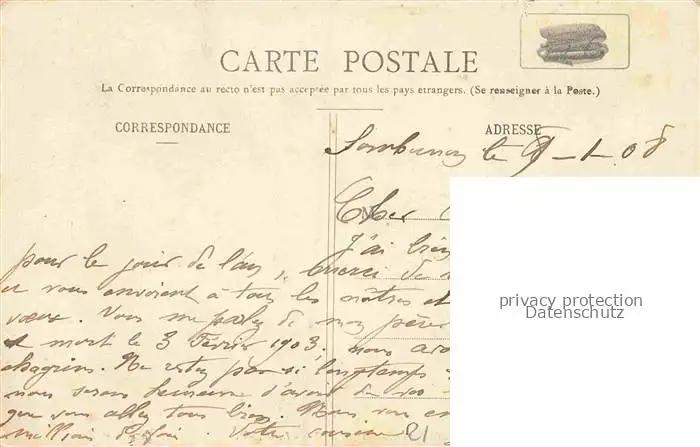 CARTE POSTALE
La Correspondance au recto n'est pas acceptée par tous les pays etrangers. (Se renseigner à la Poste.)
CORRESPONDANCE
ADRESSE
le 9-1-08
Cher
J'ai
pour le jour de l'an, merci de
et vous envoient à tous les nôtres et
vœux. Vous me parlez de mon père
mort le 3 Février 1903. nous
chagrins. Ne restez pas si longtemps
nous serons heureuse d'avoir de vos
que vous allez tous bien. Nous vous en
million de Votre cousine
21
privacy protection
Datenschutz